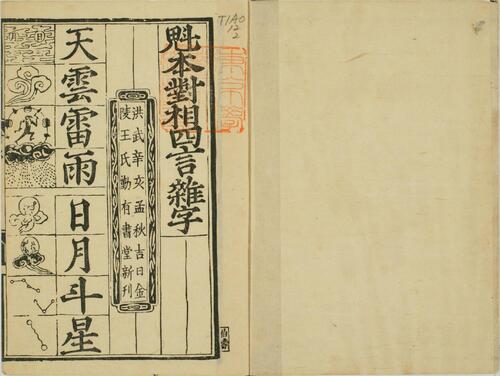 TIAO
12
2
魁本對相四言雜字
洪武辛亥孟秋吉日金
陵王氏勤有書堂新刊
天雲雷雨
日月斗星